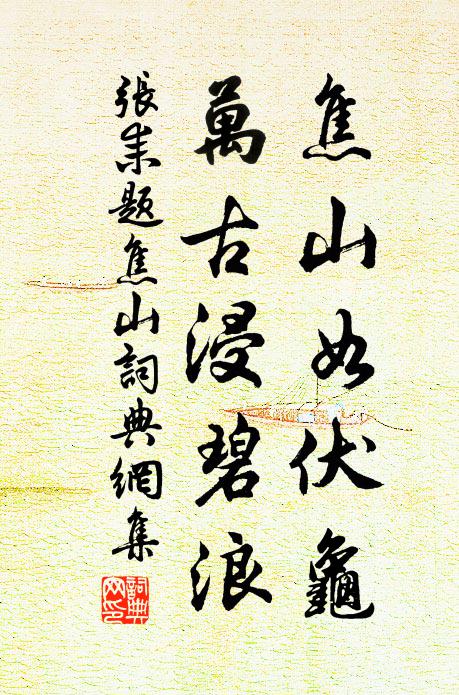 焦山如伏龜
萬古浸碧浪
張耒題焦山詞典網集
詞典
网印